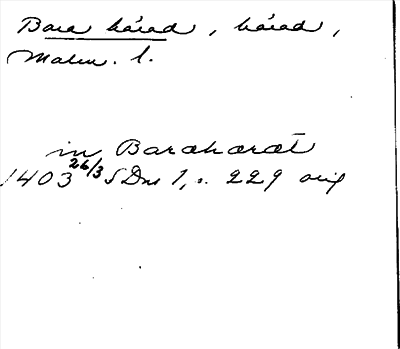 Bara härad, härad,
Malm. l.
in Baraharæt
1403 26/3 SDns 1, s. 229 orig